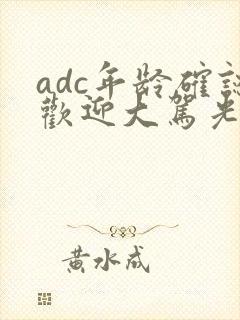 adc年龄確認
歡迎大駕光
黃水成